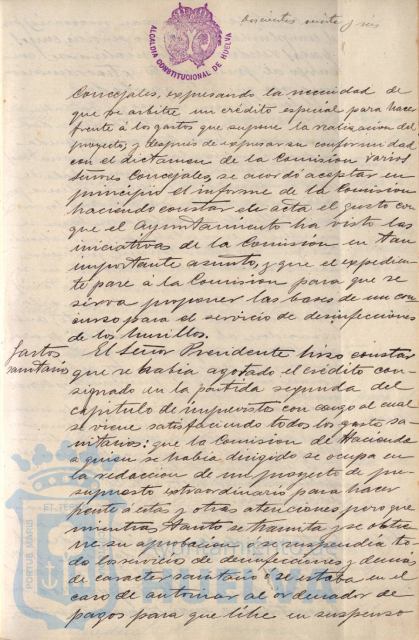 Doscientos veinte y seis
ALCALDIA CONSTITUCIONAL DE HUELVA
Concejales, expresando la necesidad de
que se arbitre un crédito especial para hacer
frente á los gastos que supone la realizacion del
proyecto, y despues de expresar su conformidad
con el dictamen de la Comision varios
Señores Concejales, se acordó aceptar en
principio el informe de la Comision
haciendo constar en acta el gusto con
que el Ayuntamiento ha visto las
iniciativas de la Comision en tan
importante asunto, y que el expedien
te pase á la Comision para que se
sirva proponer las bases de un con
curso para el servicio de desinfecciones
de los husillos.
Gastos
sanitarios
El Señor Presidente hizo constar
que se habia agotado el crédito con
signado en la partida segunda del
capitulo de imprevistos con cargo al cual
se viene satisfaciendo todos los gastos sa
nitarios: que la Comision de Hacienda
a quien se habia dirigido se ocupa en
la redaccion de un proyecto de pre
supuesto extraordinario para hacer
frente á estas y otras atenciones pero que
mientras tanto se tramita y se obtie
ne su aprobacion ó se suspendia to
do los servicios de desinfecciones y demás
de caracter sanitario ó se estaba en el
caso de autorizar al ordenador de
pagos para que libre en suspenso
PORTUS MARIS
ET TER
Ayuntamiento de